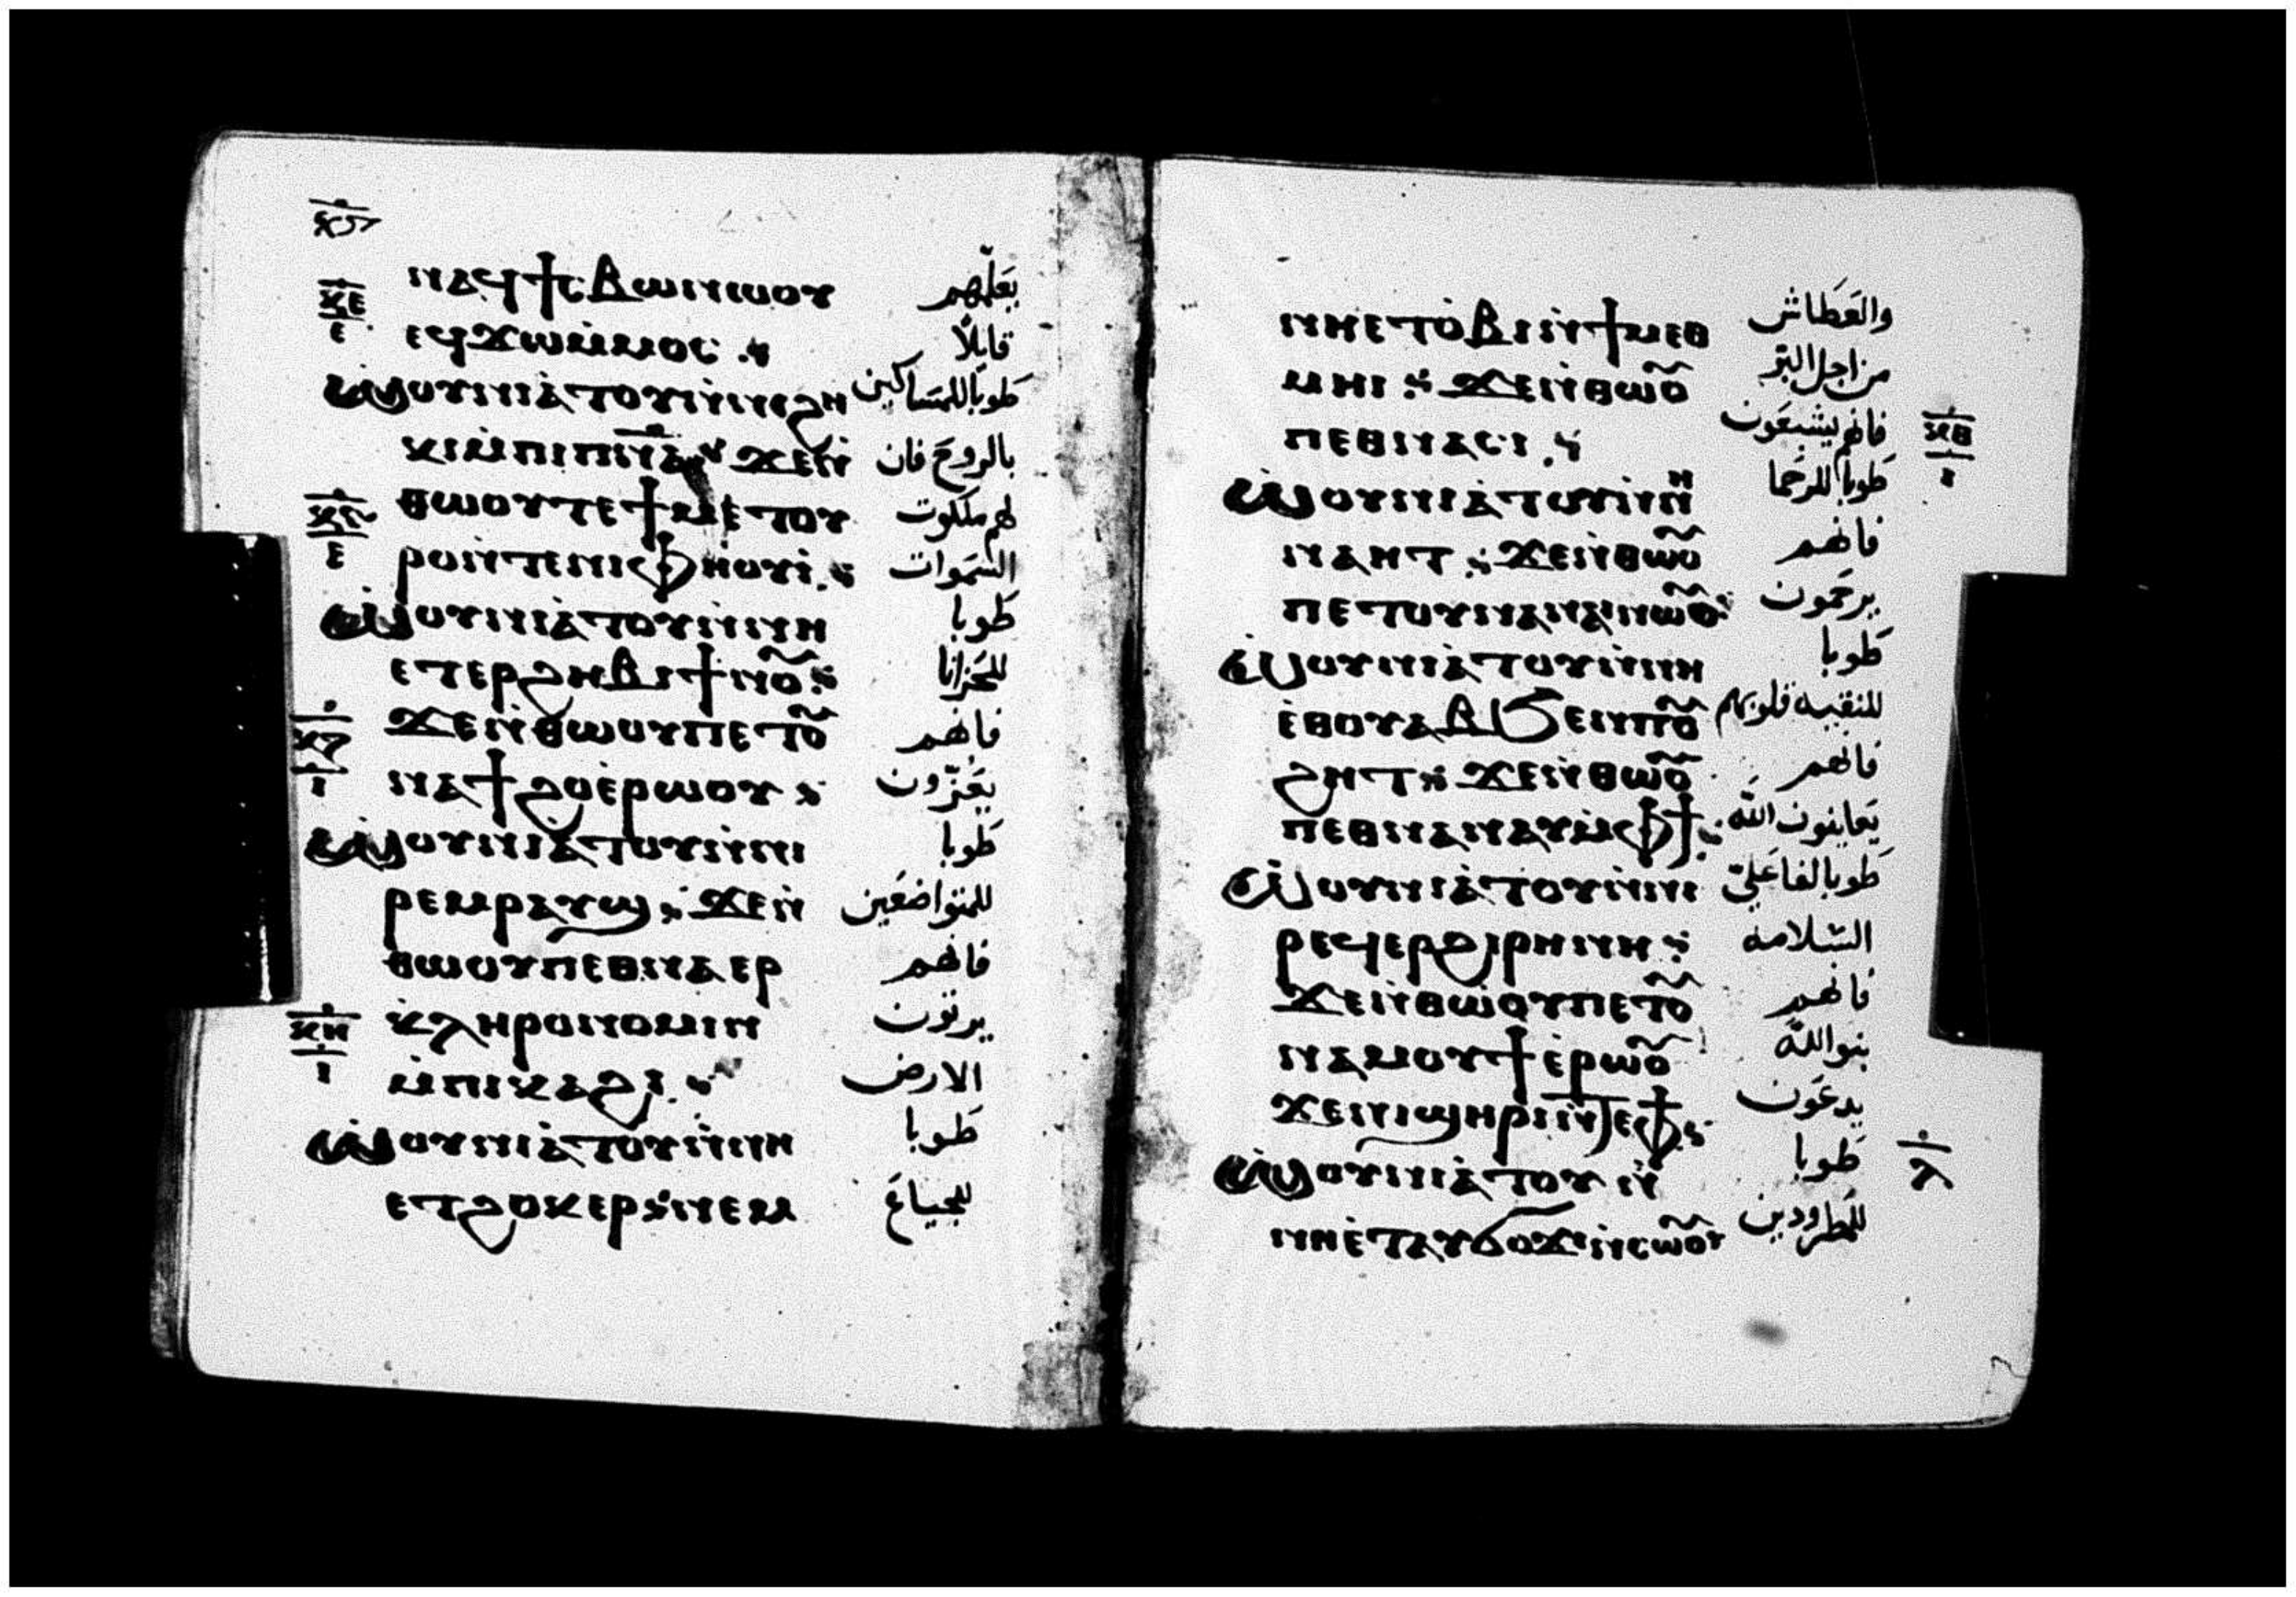 ⲛⲁϥϯⲥⲃⲱⲛⲱⲟⲩ يَعَلّمهم
ⲉϥϫⲱⲙ̀ⲙⲟⲥ قايلًا
ⲱ̀ⲟⲩⲛⲓⲁ̀ⲧⲟⲩⲛ̀ⲛⲓϩⲏ طوبا للمسَاكين
ⲕⲓⲙ̀ⲡⲓⲡⲛ̅ⲁ̅ ϫⲉⲛ̀ بالروحَ فان
ⲑⲱⲟⲩⲧⲉϯⲙⲉⲧⲟⲩ لهم ملكوت
ⲣⲟⲛ̀ⲧⲉⲛⲓⲫⲏⲟⲩⲓ̀ السَموات
ⲱ̀ⲟⲩⲛⲓⲁ̀ⲧⲟⲩⲛ̀ⲛⲏ طَوبا
ⲉⲧⲉⲣϩⲏⲃⲓϯⲛⲟ̃ للحَزانا
ϫⲉⲛ̀ⲑⲱⲟⲩⲡⲉⲧⲟ̃ فانهم
ⲛⲁϯϩⲟⲉ̀ⲣⲱⲟⲩ يَعَزّون
ⲱ̀ⲟⲩⲛⲓⲁ̀ⲧⲟⲩⲛ̀ⲛⲓ طَوبا
ⲣⲉⲙⲣⲁⲩϣ ϫⲉⲛ̀ للمتواضعَين
ⲑⲱⲟⲩⲡⲉⲑⲛⲁⲉⲣ فانهم
ⲕ̀ⲗⲏⲣⲟⲛⲟⲙⲓⲛ يرثون
ⲙ̀ⲡⲓⲕⲁϩⲓ الارض
ⲱ̀ⲟⲩⲛⲓⲁ̀ⲧⲟⲩⲛ̀ⲛⲏ طَوبا
ⲉⲧϩⲟⲕⲉⲣ ⲛⲉⲙ للجياعَ
ⲛⲏⲉⲧⲟ̀ⲃⲓⲛ̀ϯⲙⲉⲑ والعَطَاش
ⲙⲏⲓ ϫⲉⲛ̀ⲑⲱⲟ̃ من اجل البَرّ
ⲡⲉⲑⲛⲁⲥⲓ فانهم يشبعَون
ⲱ̀ⲟⲩⲛⲓⲁ̀ⲧⲟⲩⲛ̀ⲛⲏ طَوبا للرحَما
ⲛⲁⲏⲧ ϫⲉⲛ̀ⲑⲱⲟ̃ فانهم
ⲡⲉⲧⲟⲩⲛⲁⲛⲁⲓⲛⲱⲟ̃ يرحَمون
ⲱ̀ⲟⲩⲛⲓⲁ̀ⲧⲟⲩⲛ̀ⲛⲏ طَوبا
ⲉ̀ⲑⲟⲩⲁⲃϧⲉⲛⲡⲟ̃ للنقيه قلوبهم
ϩⲏⲧ ϫⲉⲛ̀ⲑⲱⲟ̃ فانهم
ⲡⲉⲑⲛⲁⲛⲁⲩⲙ̀ⲫϯ يَعاينون الله
ⲱ̀ⲟⲩⲛⲓⲁ̀ⲧⲟⲩⲛ̀ⲛⲓ طَوبا لفاعَليّ
ⲣⲉϥⲉⲣϩⲓⲣⲏⲛⲏ السَلامه
ϫⲉⲛ̀ⲑⲱⲟⲩⲡⲉⲧⲟ̃ فانهم
ⲛⲁⲙⲟⲩϯⲉ̀ⲣⲱⲟ̃ بنوالله
ϫⲉⲛⲓϣⲏⲣⲓⲛ̀ⲧⲉⲫϯ يدعَون
ⲱ̀ⲟⲩⲛⲓⲁ̀ⲧⲟⲩⲛ̀ طَوبا
ⲛⲏⲉ̀ⲧⲁⲩϭⲟϫⲓⲛ̀ⲥⲱⲟ̃ⲩ للمطَرودين